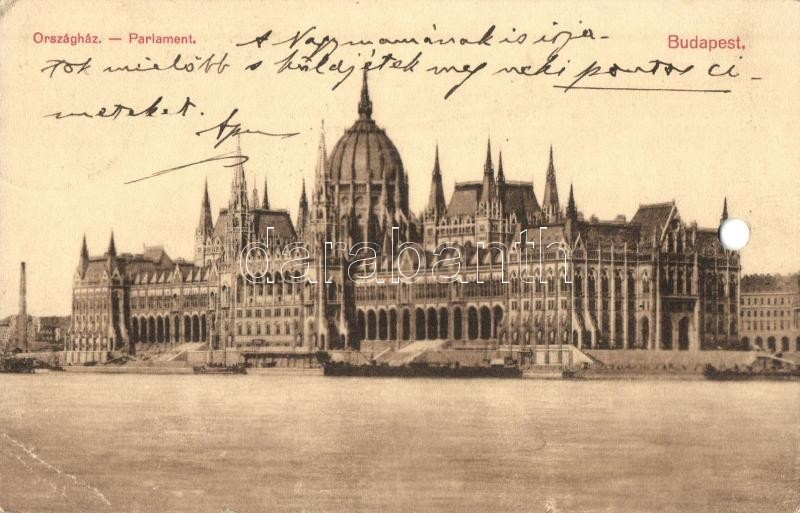 Országház. — Parlament.
Budapest.
A Nagymamának is írja-
tok mielőbb s küldjétek meg neki pontos ci-
meteket. Apu
darabanth